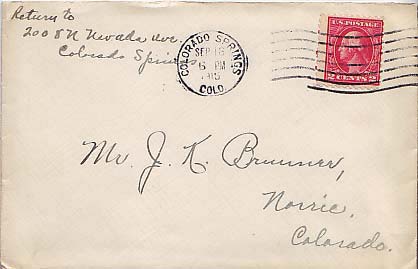 Return to
2008 N Nevada Ave.
Colorado Springs
COLORADO SPRINGS
SEP 16
6 PM
1915
COLO.
U.S. POSTAGE
2 CENTS 2
Mr. J. K. Brunner,
Norrie,
Colorado.